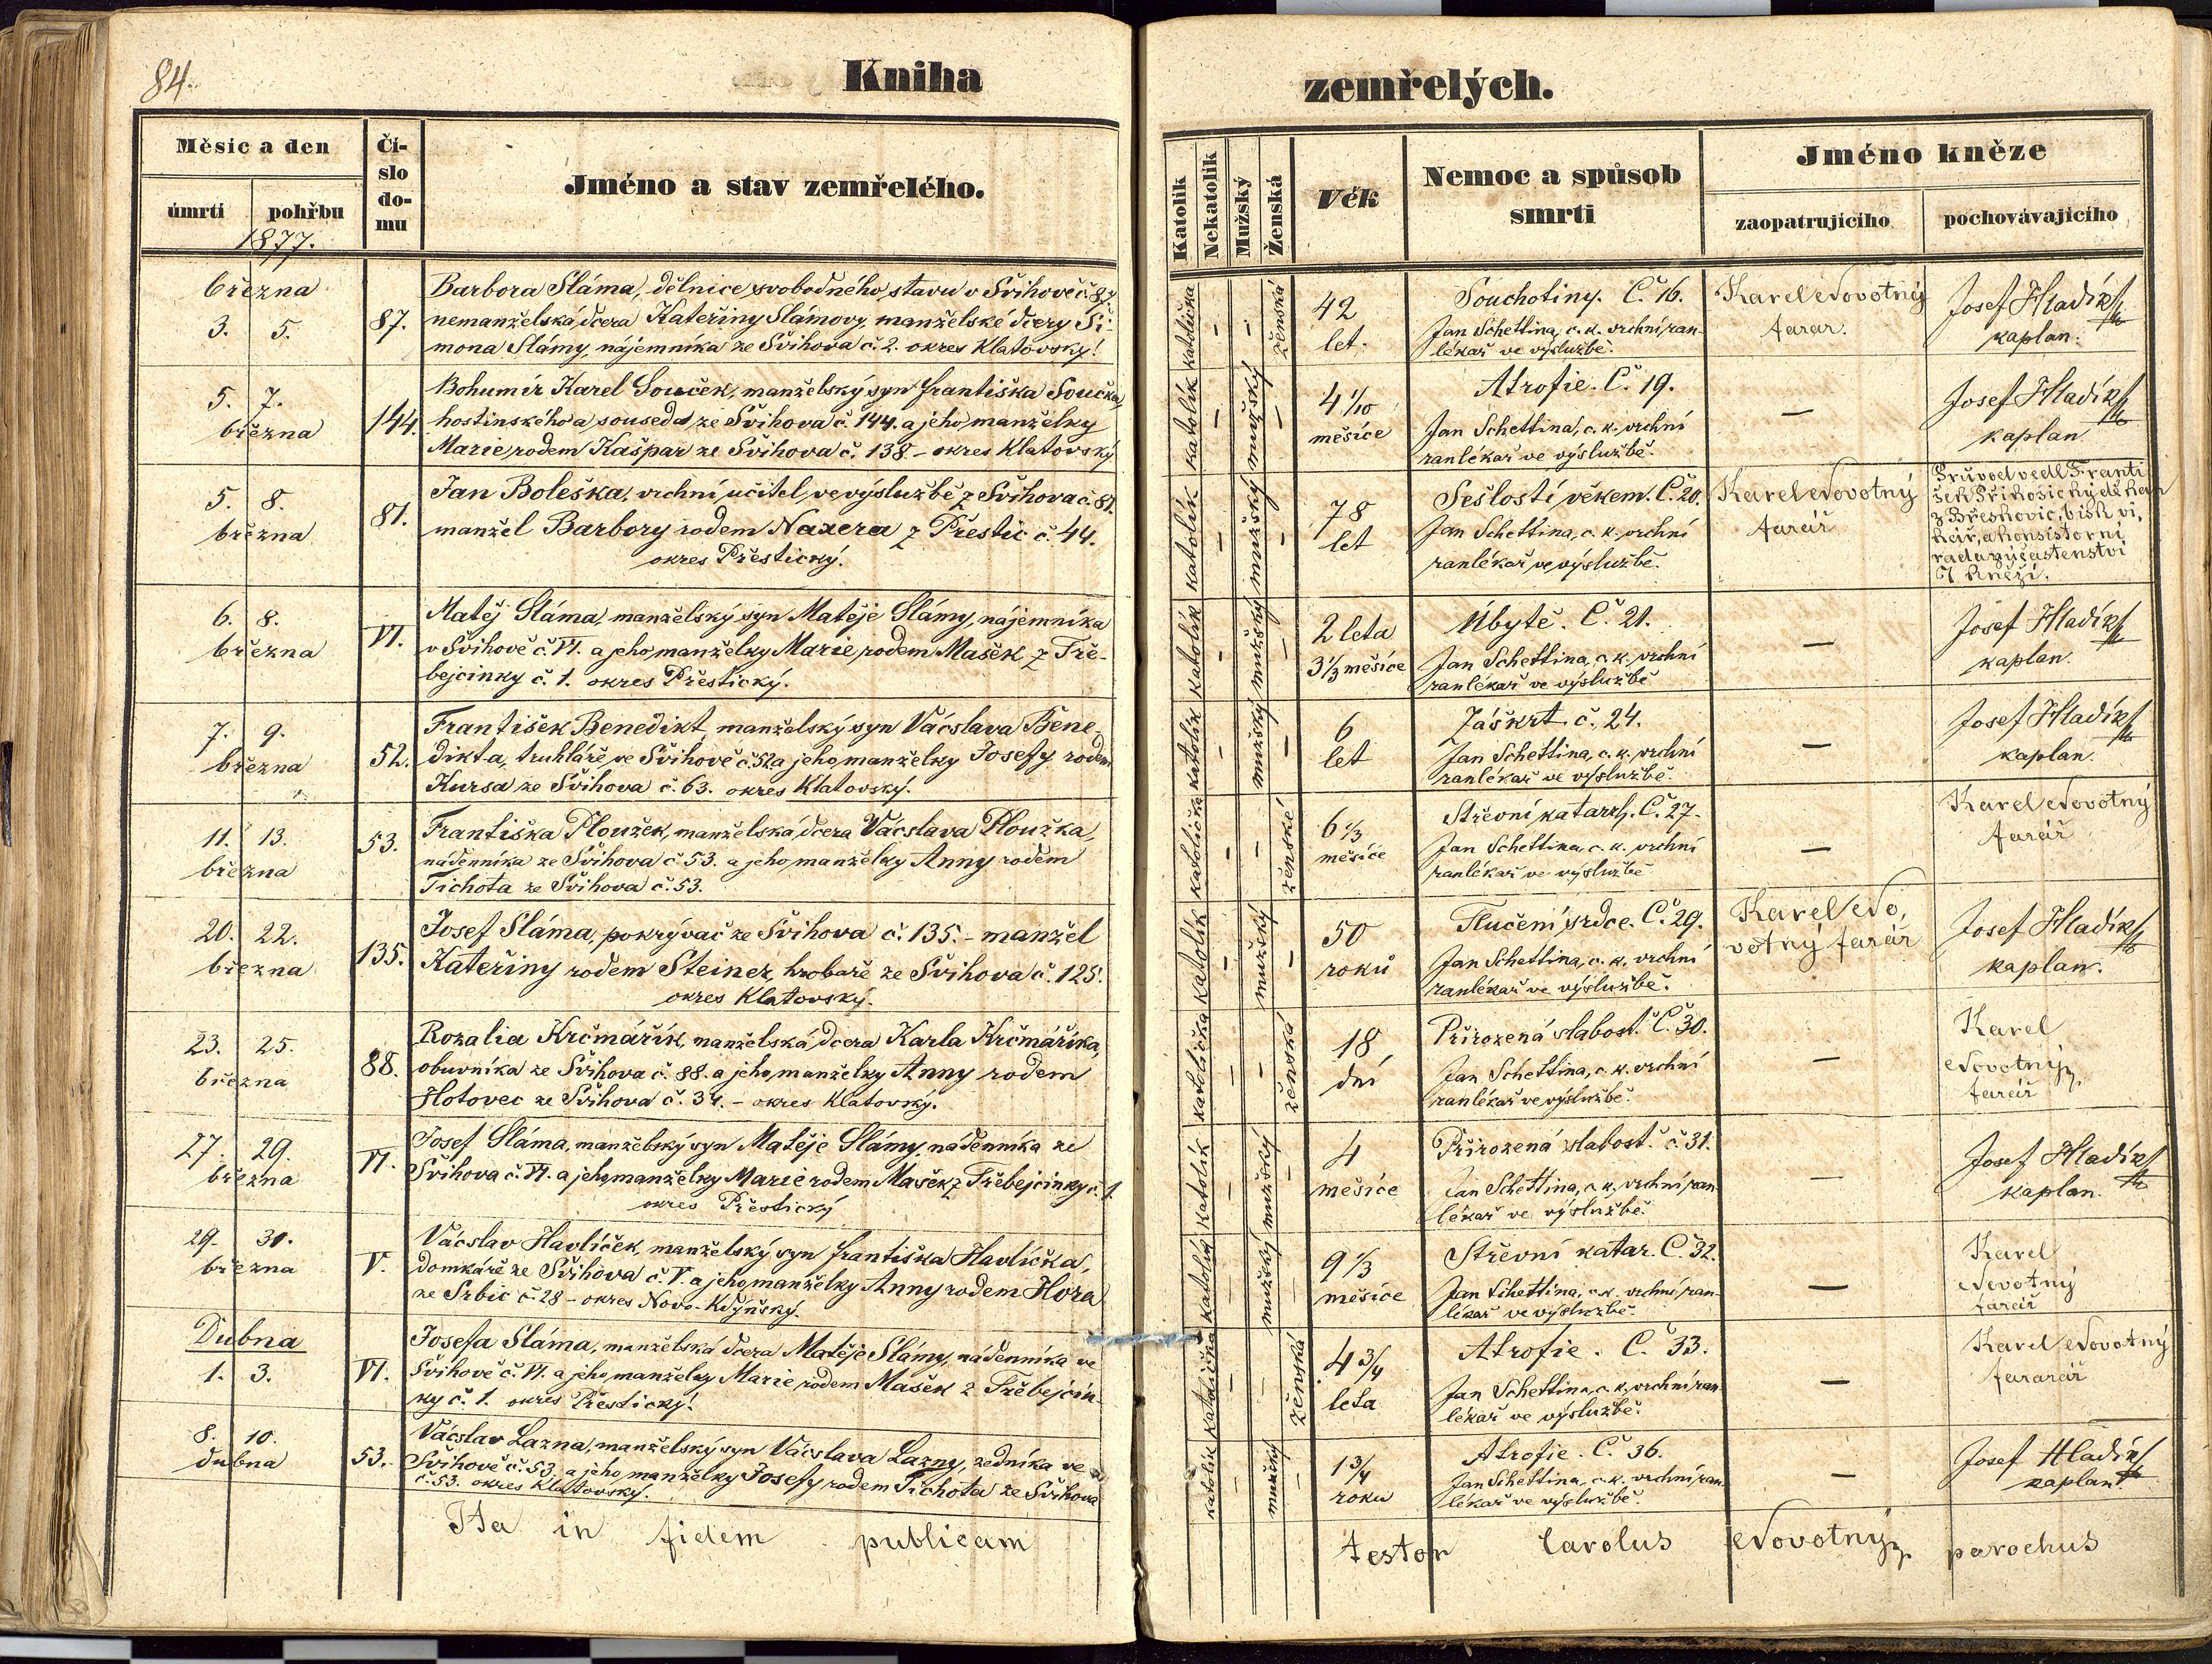 84.
Kniha
zemřelých.
Měsíc a den
úmrtí
pohřbu
1877.
Čí-
slo
do-
mu
Jméno a stav zemřelého.
Katolík
Nekatolík
Mužský
Ženská
Věk
Nemoc a spůsob
smrti
Jméno kněze
zaopatrujícího
pochovávajícího
března
3. 5.
87.
Barbora Sláma, dělnice svobodného stavu v Švihově č. 87,
nemanželská dcera Kateřiny Slámovy, manželské dcery Ši-
mona Slámy, nájemníka ze Švihova č. 2. okres Klatovský.
katolička
–
–
ženská
42
let.
Souchotiny. Č. 16.
Jan Schettina, c. k. vrchní ran-
lékař ve výslužbě.
Karel Novotný
farář.
Josef Hladík
kaplan.
5. 7.
března
144.
Bohumír Karel Souček, manželský syn Františka Součka,
hostinského a souseda ze Švihova č. 144. a jeho manželky
Marie, rodem Kašpar ze Švihova č. 138 – okres Klatovský
katolík
–
mužský
–
4 1/10
měsíce
Atrofie. Č. 19.
Jan Schettina, c. k. vrchní
ranlékař ve výslužbě.
–
Josef Hladík
kaplan
5. 8.
března
81.
Jan Boleška, vrchní učitel ve výslužbě z Švihova č. 81.
manžel Barbory rodem Naxera z Přestic č. 44.
okres Přestický.
katolík
–
mužský
–
78
let
Sešlostí věkem. Č. 20.
Jan Schettina, c. k. vrchní
ranlékař ve výslužbě.
Karel Novotný
farář
Průvod vedl Franti
šek Přikosický děkan
z Břeskovic, bisk. vi,
kář, a konsistorní
rada zúčastenství
7 kněží.
6. 8.
března
VI.
Matěj Sláma, manželský syn Matěje Slámy, nájemníka
v Švihově č. VI. a jeho manželky Marie, rodem Mašek z Tře-
bejcinky č. 1. okres Přestický.
katolík
–
mužský
–
2 leta
3 1/3 měsíce
Úbytě. Č. 21.
Jan Schettina, c. k. vrchní
ranlékař ve výslužbě
–
Josef Hladík
kaplan.
7. 9.
března
52.
František Benedikt, manželský syn Václava Bene-
dikta, truhláře ve Švihově č. 52 a jeho manželky Josefy rodem
Kursa ze Švihova č. 63. okres Klatovský.
katolík
–
mužský
–
6
let
Záškrt. č. 24.
Jan Schettina, c. k. vrchní
ranlékař ve výslužbě.
–
Josef Hladík
kaplan.
11. 13.
března
53.
Františka Ploužek, manželská dcera Václava Ploužka,
nádenníka ze Švihova č. 53. a jeho manželky Anny rodem
Tichota ze Švihova č. 53.
katolička
–
–
ženské
6 1/3
měsíce
Střevní katarrh. Č. 27.
Jan Schettina, c. k. vrchní
ranlékař ve výslužbě
–
Karel Novotný
farář
20. 22.
března
135.
Josef Sláma, pokrývač ze Švihova č. 135. – manžel
Kateřiny rodem Steiner, hrobaře ze Švihova č. 125.
okres Klatovský.
katolík
–
mužský
–
50
roků
Tlučení srdce. Č. 29.
Jan Schettina, c. k. vrchní
ranlékař ve výslužbě.
Karel No,
votný farář
Josef Hladík
kaplan.
23. 25.
března
88.
Rozalia Krčmářík, manželská dcera Karla Krčmáříka,
obuvníka ze Švihova č. 88. a jeho manželky Anny rodem
Hotovec ze Švihova č. 34. – okres Klatovský.
katolička
–
–
ženská
18
dní
Přirozená slabost. Č. 30.
Jan Schettina, c. k. vrchní
ranlékař ve výslužbě.
–
Karel
Novotný
farář
27. 29.
března
VI.
Josef Sláma, manželský syn Matěje Slámy, nádenníka ze
Švihova č. VI. a jeho manželky Marie rodem Mašek z Třebejcinky č. 1.
okres Přestický
katolík
–
mužský
–
4
měsíce
Přirozená slabost. č. 31.
Jan Schettina, c. k. vrchní ran-
lékař ve výslužbě.
–
Josef Hladík
kaplan.
29. 31.
března
V.
Václav Havlíček, manželský syn Františka Havlíčka,
domkáře ze Švihova č. V. a jeho manželky Anny rodem Hora
ze Srbic č. 28 – okres Novo-Kdýňský.
katolík
–
mužský
–
9 1/3
měsíce
Střevní katar. Č. 32.
Jan Schettina, c. k. vrchní ran-
lékař ve výslužbě.
–
Karel
Novotný
farář
Dubna
1. 3.
VI.
Josefa Sláma, manželská dcera Matěje Slámy, nádenníka ve
Švihově č. VI. a jeho manželky Marie rodem Mašek z Třebejcin-
ky č. 1. okres Přestický.
katolička
–
–
ženská
4 3/4
leta
Atrofie. Č. 33.
Jan Schettina, c. k. vrchní ran-
lékař ve výslužbě.
–
Karel Novotný
fararář
8. 10.
dubna
53.
Václav Lazna, manželský syn Václava Lazny, zedníka ve
Švihově č. 53. a jeho manželky Josefy rodem Tichota ze Švihova
č. 53. okres Klatovský.
katolík
–
mužský
–
1 3/4
roku
Atrofie. Č. 36.
Jan Schettina, c. k. vrchní ran-
lékař ve výslužbě.
–
Josef Hladík
kaplan
Ita in fidem publicam
testor Carolus Novotný, parochus